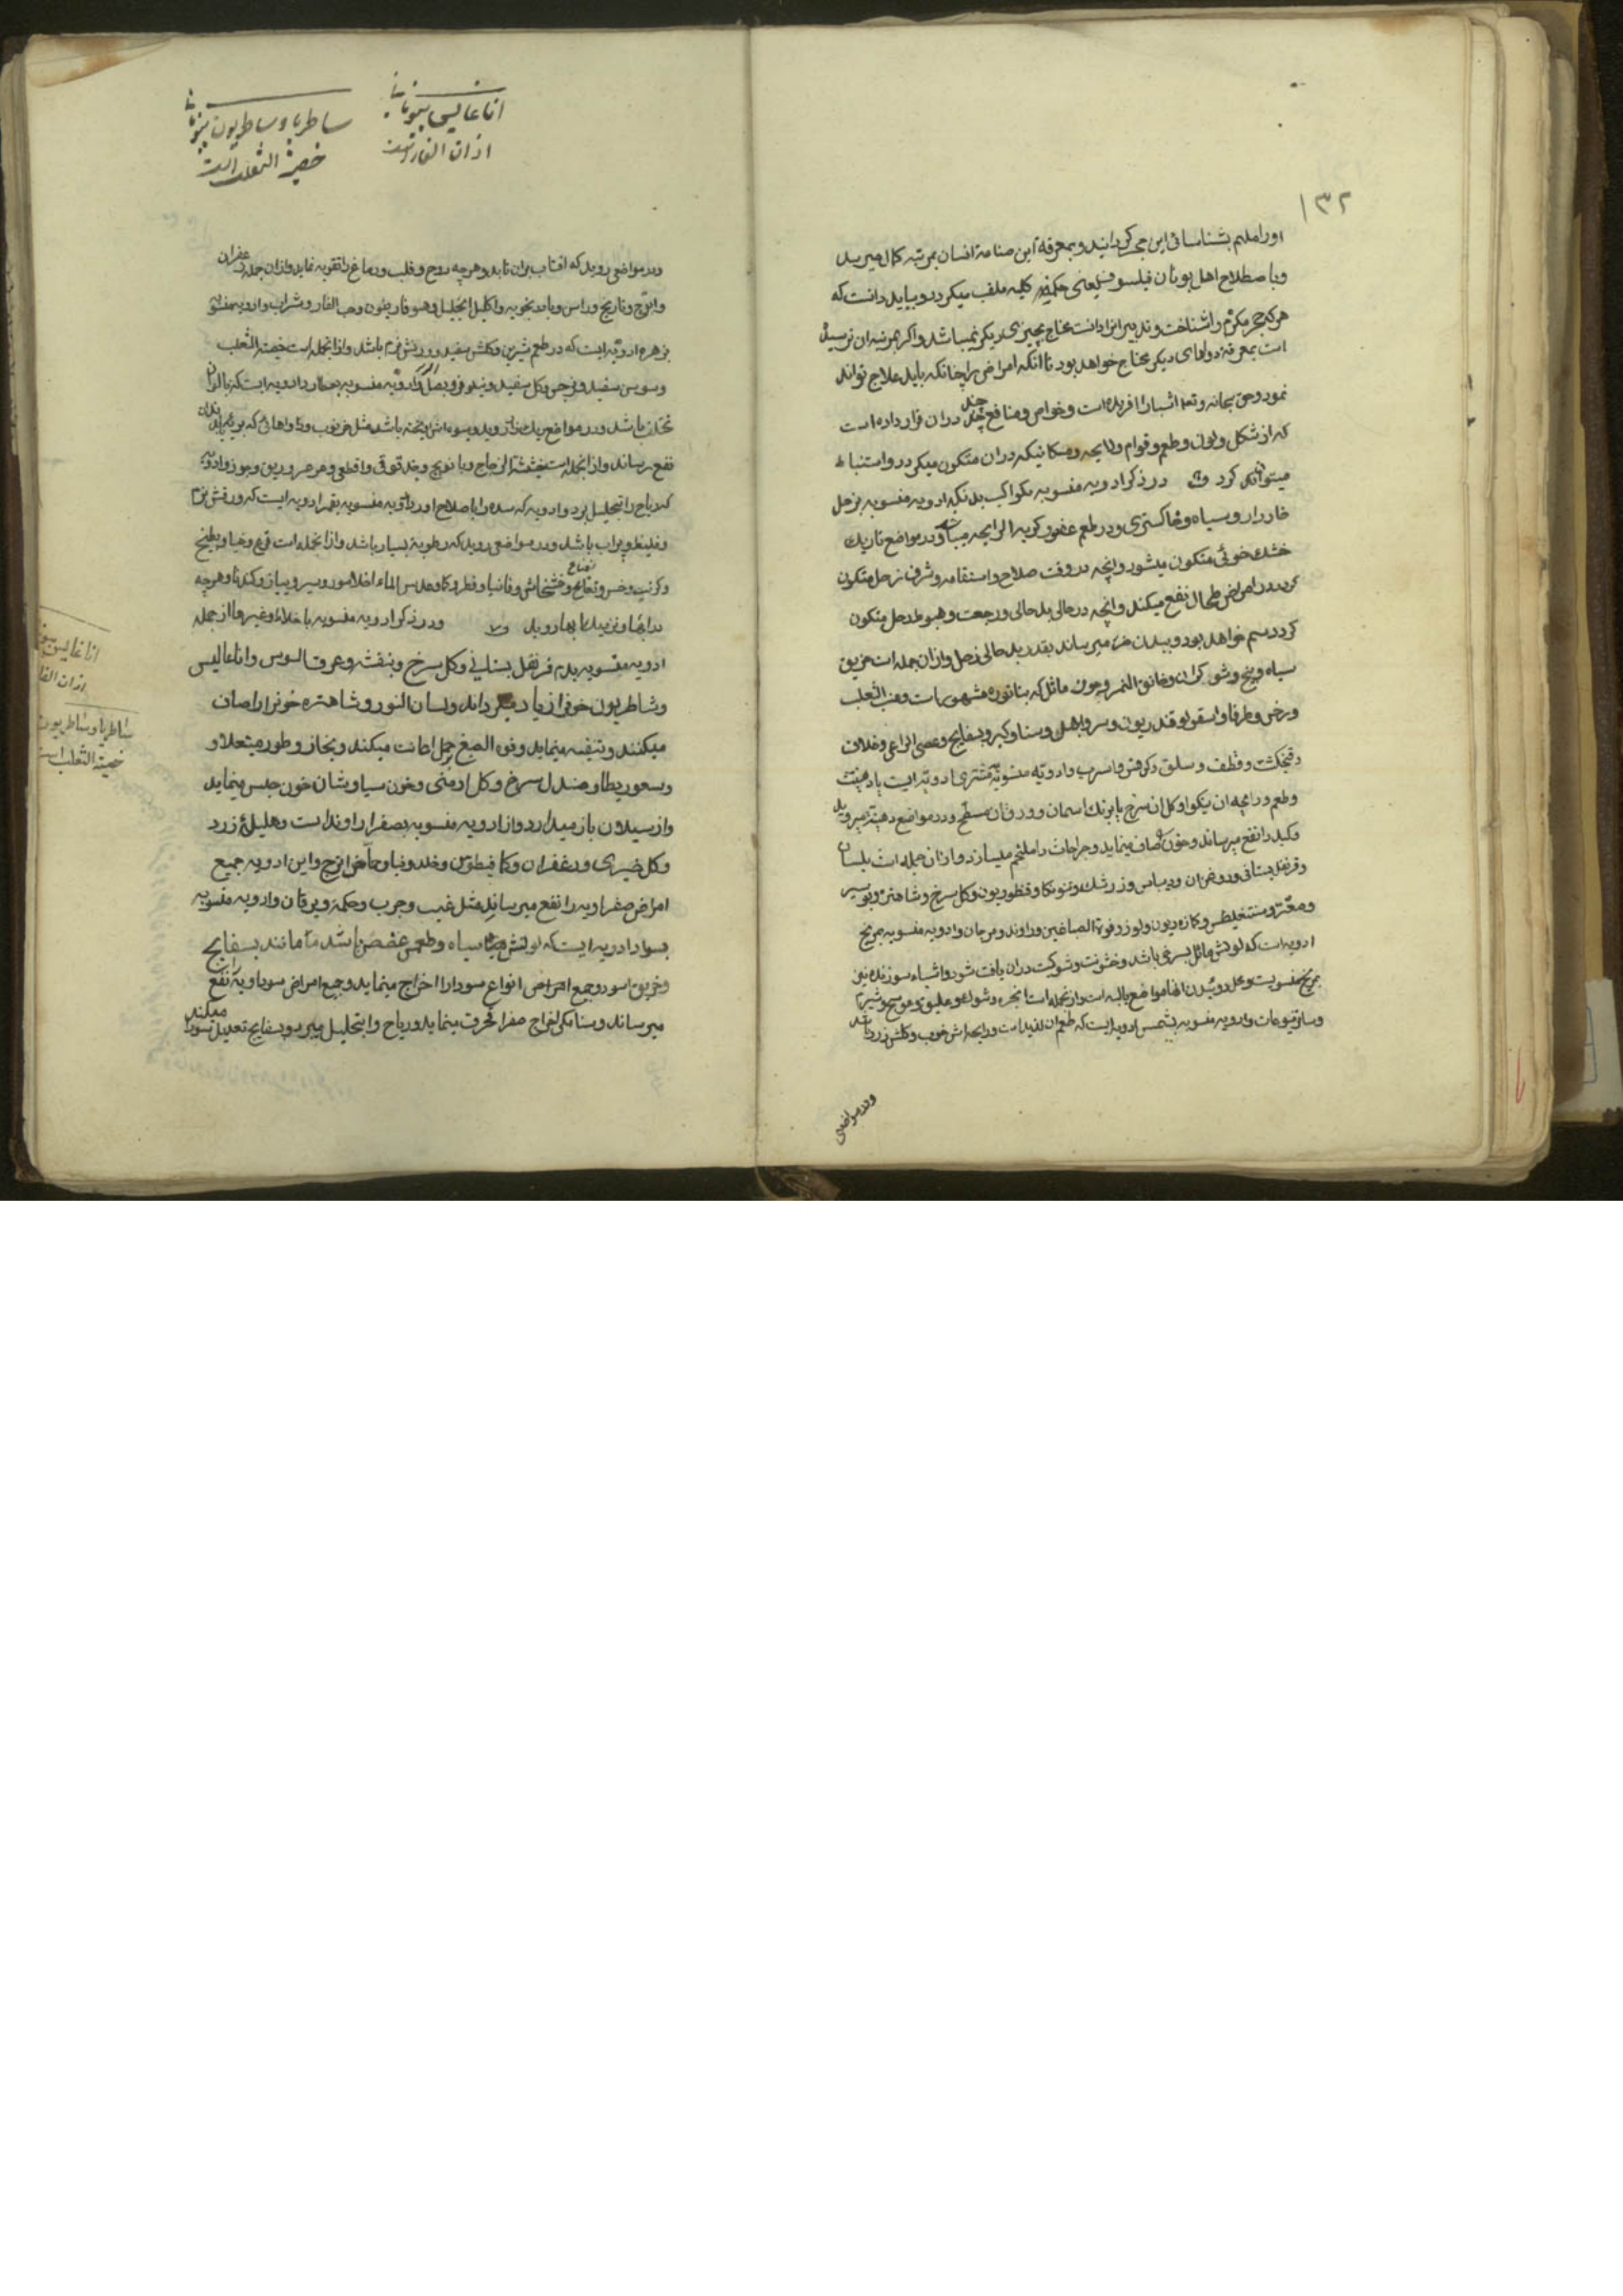 ۱۳۲
اورا ملهم بشناسائی این حجر گردانید و بمعرفة این صناعة انسان بمرتبه کمال میرسد
و باصطلاح اهل یونان فیلسوف یعنی حکیم کلیه ملقب میکردد و بباید دانست که
هر که حجر مکرم را شناخت و تدبیر انرا دانست محتاج بچیزی دیکر نمیباشد و اکر بمرتبه ان نرسیده
است بمعرفة دواهای دیکر محتاج خواهد بود تا انکه امراض را چنانکه باید علاج تواند
نمود و حق سبحانه و تعا اشیا را افریده است و خواص و منافع چند دران قرار داده است
که از شکل و لون و طعم و قوام و رایحه و مکانیکه دران متکون میکردد استنباط
میتوان کرد در ذکر ادویه منسوبه بکواکب بدانکه ادویه منسوبه بزحل
خاردار و سیاه و خاکستری و در طعم عفص و کریه الرایحه میباشد و در مواضع تاریک
خشک متکون میشود و انچه در وقت صلاح و استقامه و شرف زحل متکون
کردد در امراض طحال نفع میکند و انچه در حالی بد حالی و رجعت و هبوط زحل متکون
کردد سم خواهد بود و ببدن ضرر میرساند بقدر بد حالی زحل و ازان جمله است خربق
سیاه و بنج و شوکران و خانق النمر و جوز ماثل که بتاتوره مشهور است و عنب الثعلب
و سرخس و طرفا و اسقولوقندریون و سرو و ابهل و سنا و کبر و بسفایج و عصی الراعی و خلاف
و فنجنکشت و قطف و سلق و اسرب و ادویه منسوبه بمشتری ادویه ایست با دهنیت
و طعم و رایحه ان نیکو و کل ان سرخ یا برنک اسمان و ورق ان مسطح و در مواضع دهنیه میروید
و کبد را نفع میرساند و خون صاف مینماید و جراحات را ملتحم میسازد و ازان جمله است بلسان
و قرنفل بستانی و زعفران و ریباس و زرشک و قنطوریون و کل سرخ و شاهتره و بوسیر
و فوة الصباغین و راوند و مرجان و ادویه منسوبه بمریخ
ادویه است که لونش مائل بسرخی باشد و خشونت و شوکت دران یافت شود و اشیاء سوزنده نیز
بمریخ منسوبست و محل روئیدن انها مواضع یابسه است و ازانجمله است انجره و
و سائر یتوعات و ادویه منسوبه بشمس ادویه ایست که طعم ان لذیذ است و رایحه اش خوب و کلش زرد باشد
ودر مواضعی
اناغالیس بیونانی
اذان الفار است
ساطریا و ساطریون بیونانی
خصیة الثعلب است
ودر مواضعی روید که افتاب بران تابد و هر چه روح و قلب و دماغ را تقویه نماید و ازان جمله زعفران
و اترج و نارنج و راسن و بادرنجویه و اکلیل الجبل و هیوفاریقون و حب الغار و شراب و ادویه منسوبه
بزهره ادویه ایست که در طعم شیرین و کلش سفید و ورقش نرم باشد و ازانجمله است خصیة الثعلب
و سوسن سفید و نرجس و کل سفید و نیلوفر و ادویه منسوبه بعطارد ادویه ایست که بالوان
مختلف باشد و در مواضع ریک زار روید و میوه اش باشد مثل خرنوب و دواهائی که
نفع رساند و ازانجمله است حشیشة الزجاج و بابونج و حندقوقی و
که ریاح را بتحلیل برد و ادویه که سده را باصلاح اورد و ادویه منسوبه بقمر ادویه ایست که ورقش نرم
و غلیظ و پر اب باشد و در مواضعی روید که رطوبة بسیار باشد و ازانجمله است قرع و خیار و بطیخ
و کرنب و خس و تفاح و خشخاش و فطر و عدس الماء و سیر و پیاز و کندنا و هر چه
در ابها و نزدیک ابها روید ودر ذکر ادویه منسوبه باخلاط و غیرها از جمله
ادویه منسوبه بدم قرنفل بستانی و کل سرخ و بنفشه و عرق السوس و اناغالیس
و شاطریون خون را زیاد میکرداند و لسان الثور و شاهتره خون را صاف
میکنند و تنقیه مینماید و فوة الصبغ حمل اعانت میکند و
و صندل سرخ و کل ارمنی و خون سیاوشان خون حبس مینماید
و از سیلان باز میدارد و از ادویه منسوبه بصفرا راوند است و هلیلهٔ زرد
و کل خیری و زعفران و کمافیطوس و و حماض اترج و این ادویه جمیع
امراض صفراویه را نفع میرساند مثل غب و جرب و حکه و یرقان و ادویه منسوبه
بسودا ادویه ایست که لونش سیاه و طعمش عفص باشد مانند بسفایج
و خربق اسود و جمیع امراض انواع سودا را اخراج مینماید و جمیع امراض سوداویه را نفع
میرساند و سنا مکی اخراج صفرا محرق مینماید و ریاح را بتحلیل میبرد و بسفایج تعدیل سودا میکند
اناغالیس
اذان الفا
ساطریا و ساطریون
خصیة الثعلب است